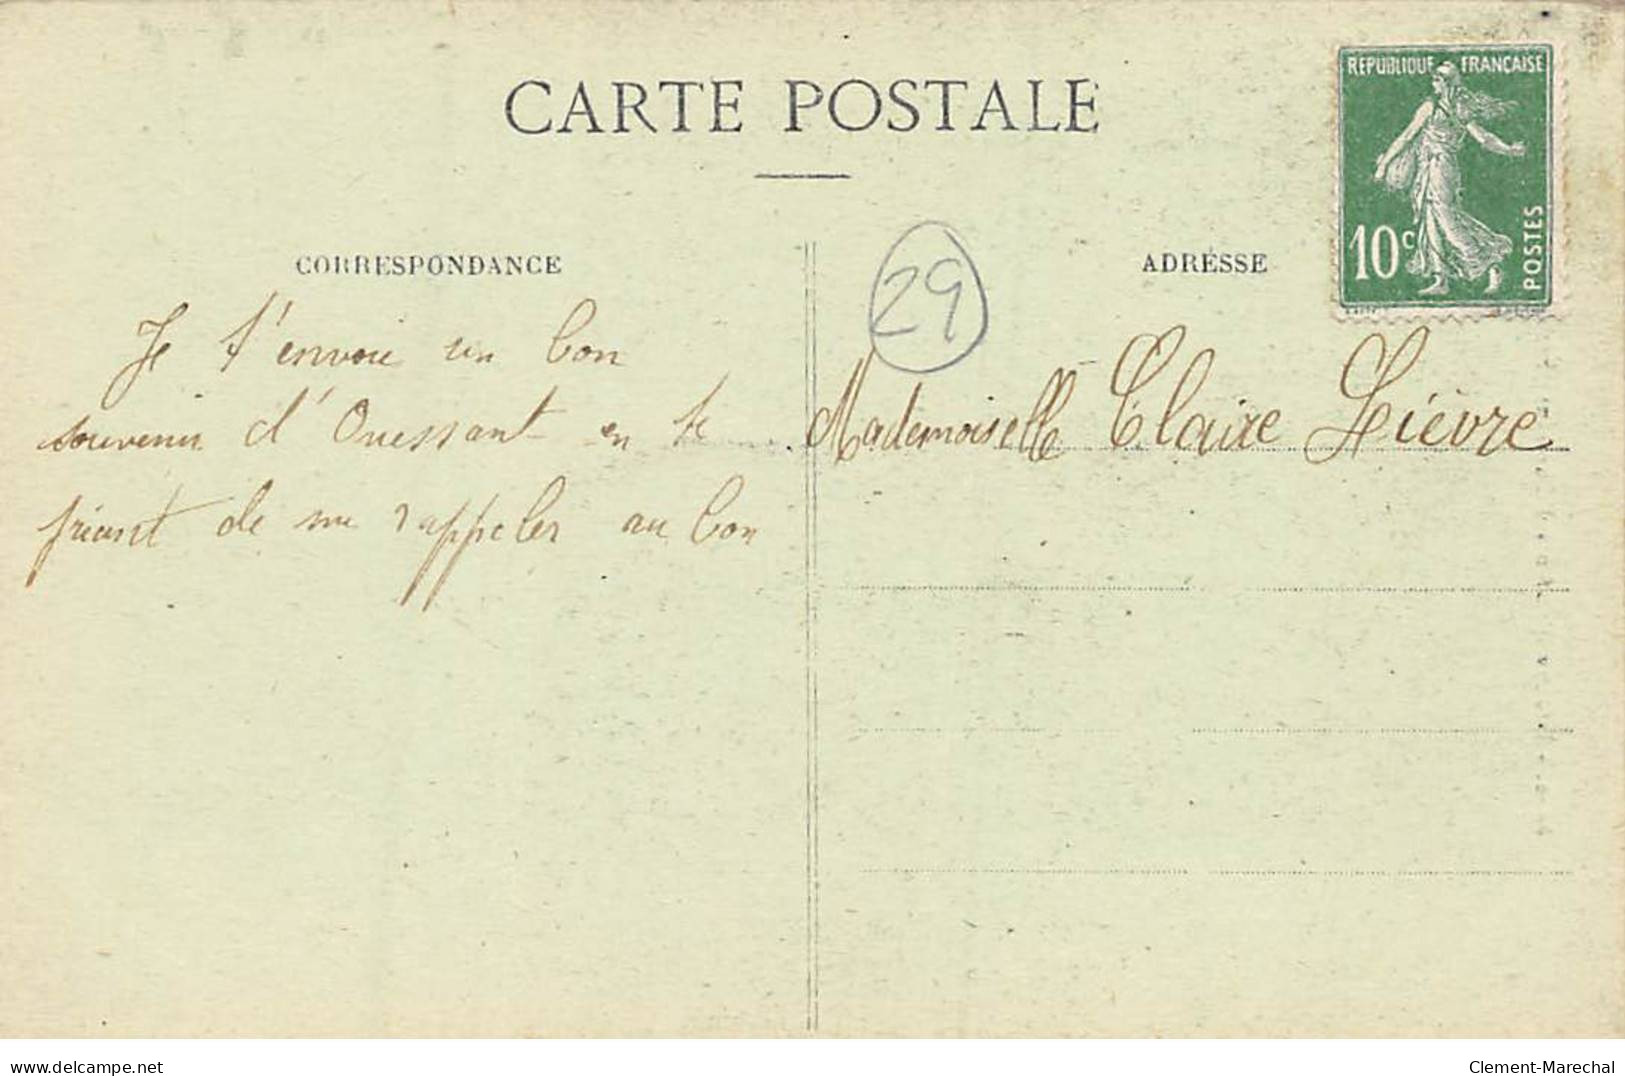 CARTE POSTALE
REPUBLIQUE FRANÇAISE
10c
POSTES
CORRESPONDANCE
Je t'envoie un bon
souvenir d'Ouessant en te
priant de me rappeler au bon
29
ADRESSE
Mademoiselle Claire Lièvre
www.delcampe.net
Clement-Marechal